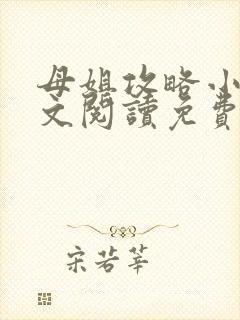 母姐攻略小
文閱讀免費
宋若莘